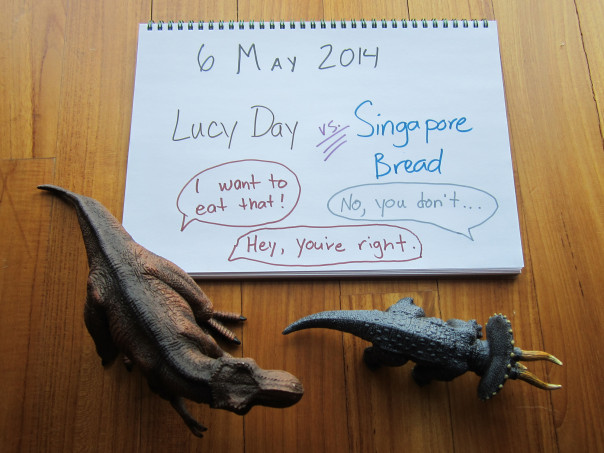 6 May 2014
Lucy Day vs. Singapore
Bread
I want to
eat that!
No, you don't...
Hey, you're right.